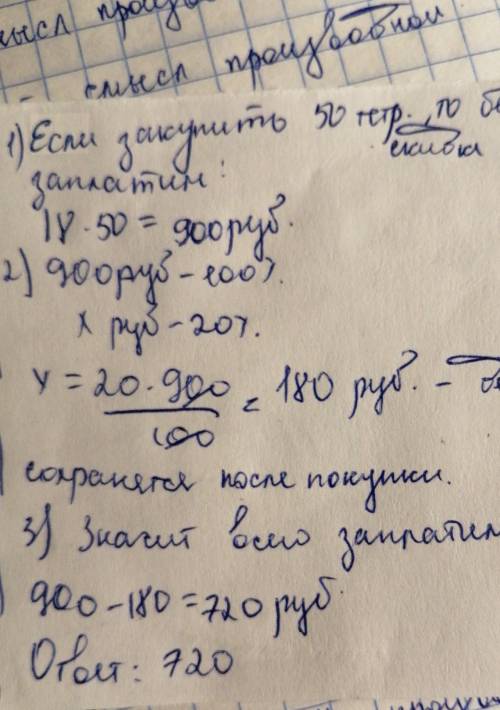 смысл произво
смысл производной
1) Если закупить 50 тетр., то бе
скидка
заплатим:
18·50 = 900 руб.
2) 900 руб – 100%
х руб – 20%.
х = 20·900 / 100 = 180 руб. –
сохранятся после покупки.
3) Значит всего заплатим
900 – 180 = 720 руб.
Ответ: 720